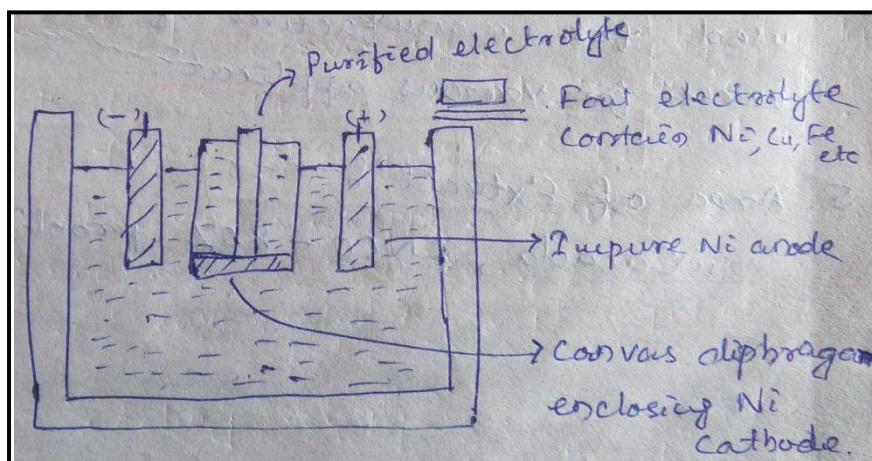 Purified electrolyte
(-)
(+)
Foul electrolyte
contains Ni, Cu, Fe
etc
Impure Ni anode
Canvas diphragam
enclosing Ni
cathode.